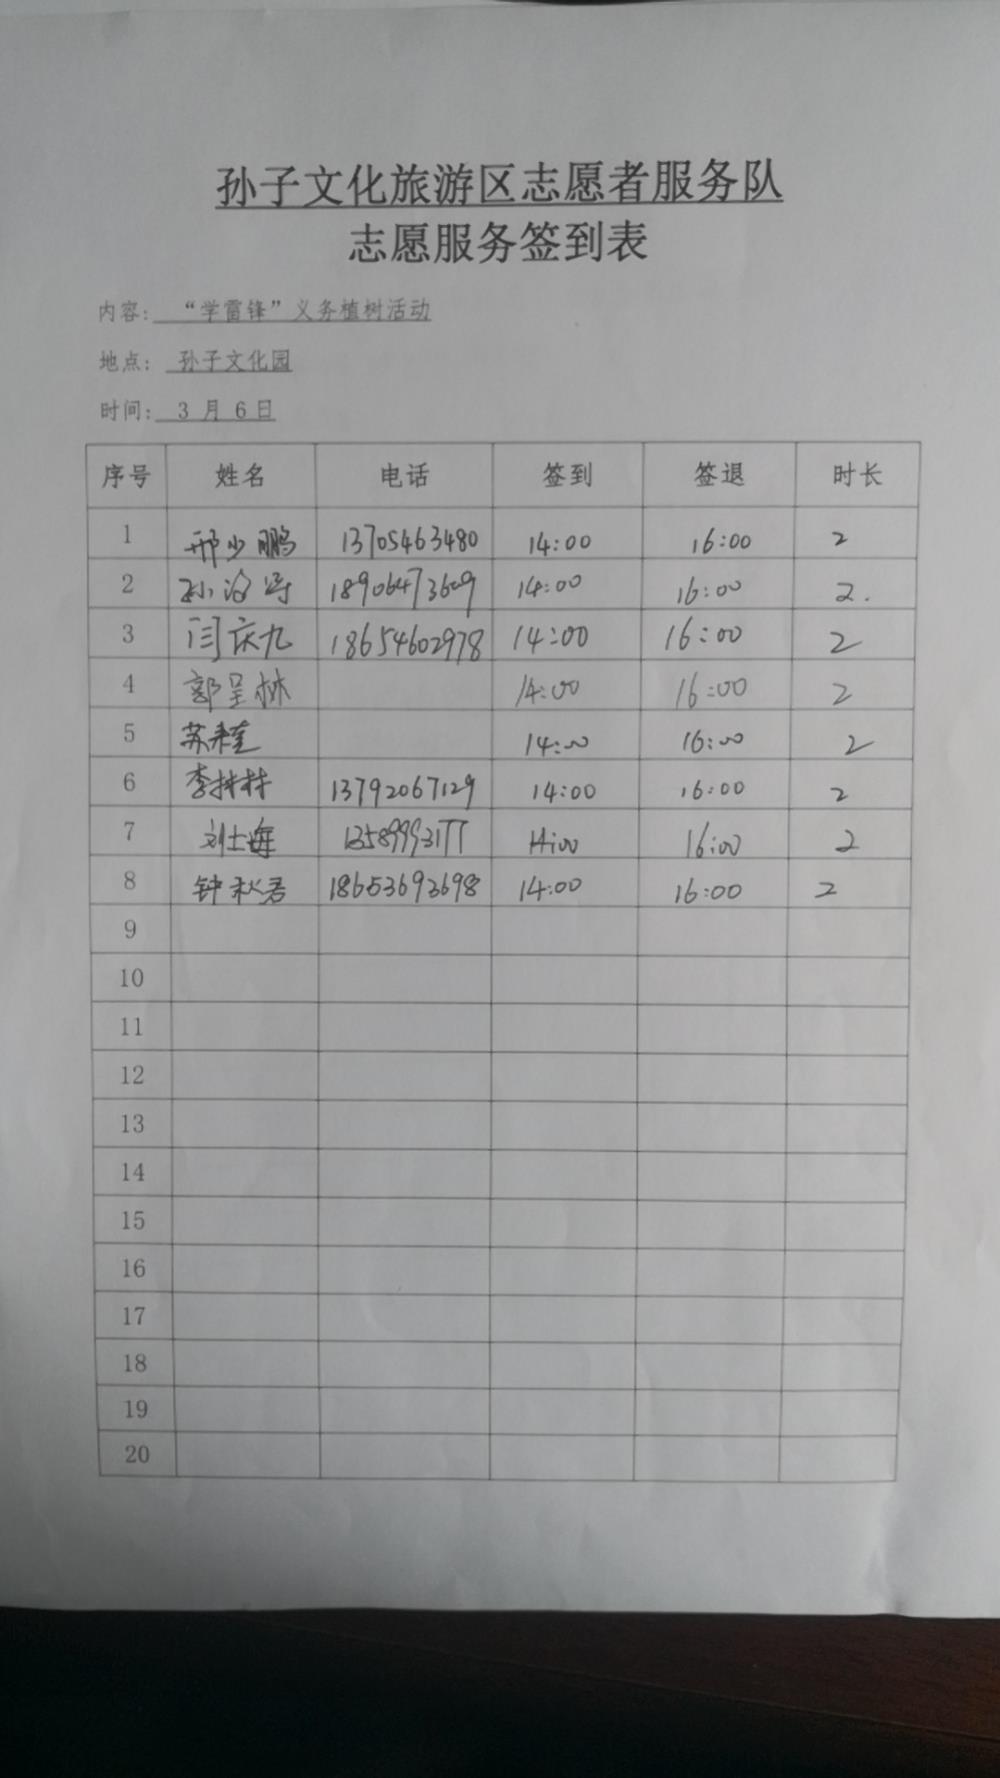 孙子文化旅游区志愿者服务队
志愿服务签到表
内容: “学雷锋”义务植树活动
地点: 孙子文化园
时间: 3 月 6 日
序号 姓名 电话 签到 签退 时长
1 邢少鹏 13705463480 14:00 16:00 2
2 孙 18906473609 14:00 16:00 2.
3 闫庆九 18654602978 14:00 16:00 2
4 郭呈林 14:00 16:00 2
5 苏来奎 14:00 16:00 2
6 李林林 13792067129 14:00 16:00 2
7 刘士海 13589993177 14:00 16:00 2
8 钟秋君 18653693698 14:00 16:00 2
9
10
11
12
13
14
15
16
17
18
19
20